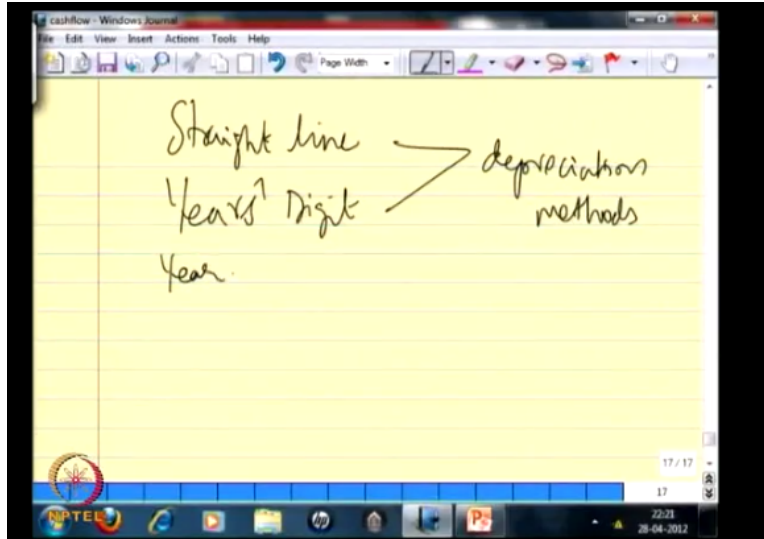 cashflow - Windows Journal
File Edit View Insert Actions Tools Help
Page Width
Straight line
'Years' Digit
depreciation
methods
Year
17 / 17
17
NPTEL
22:21
28-04-2012